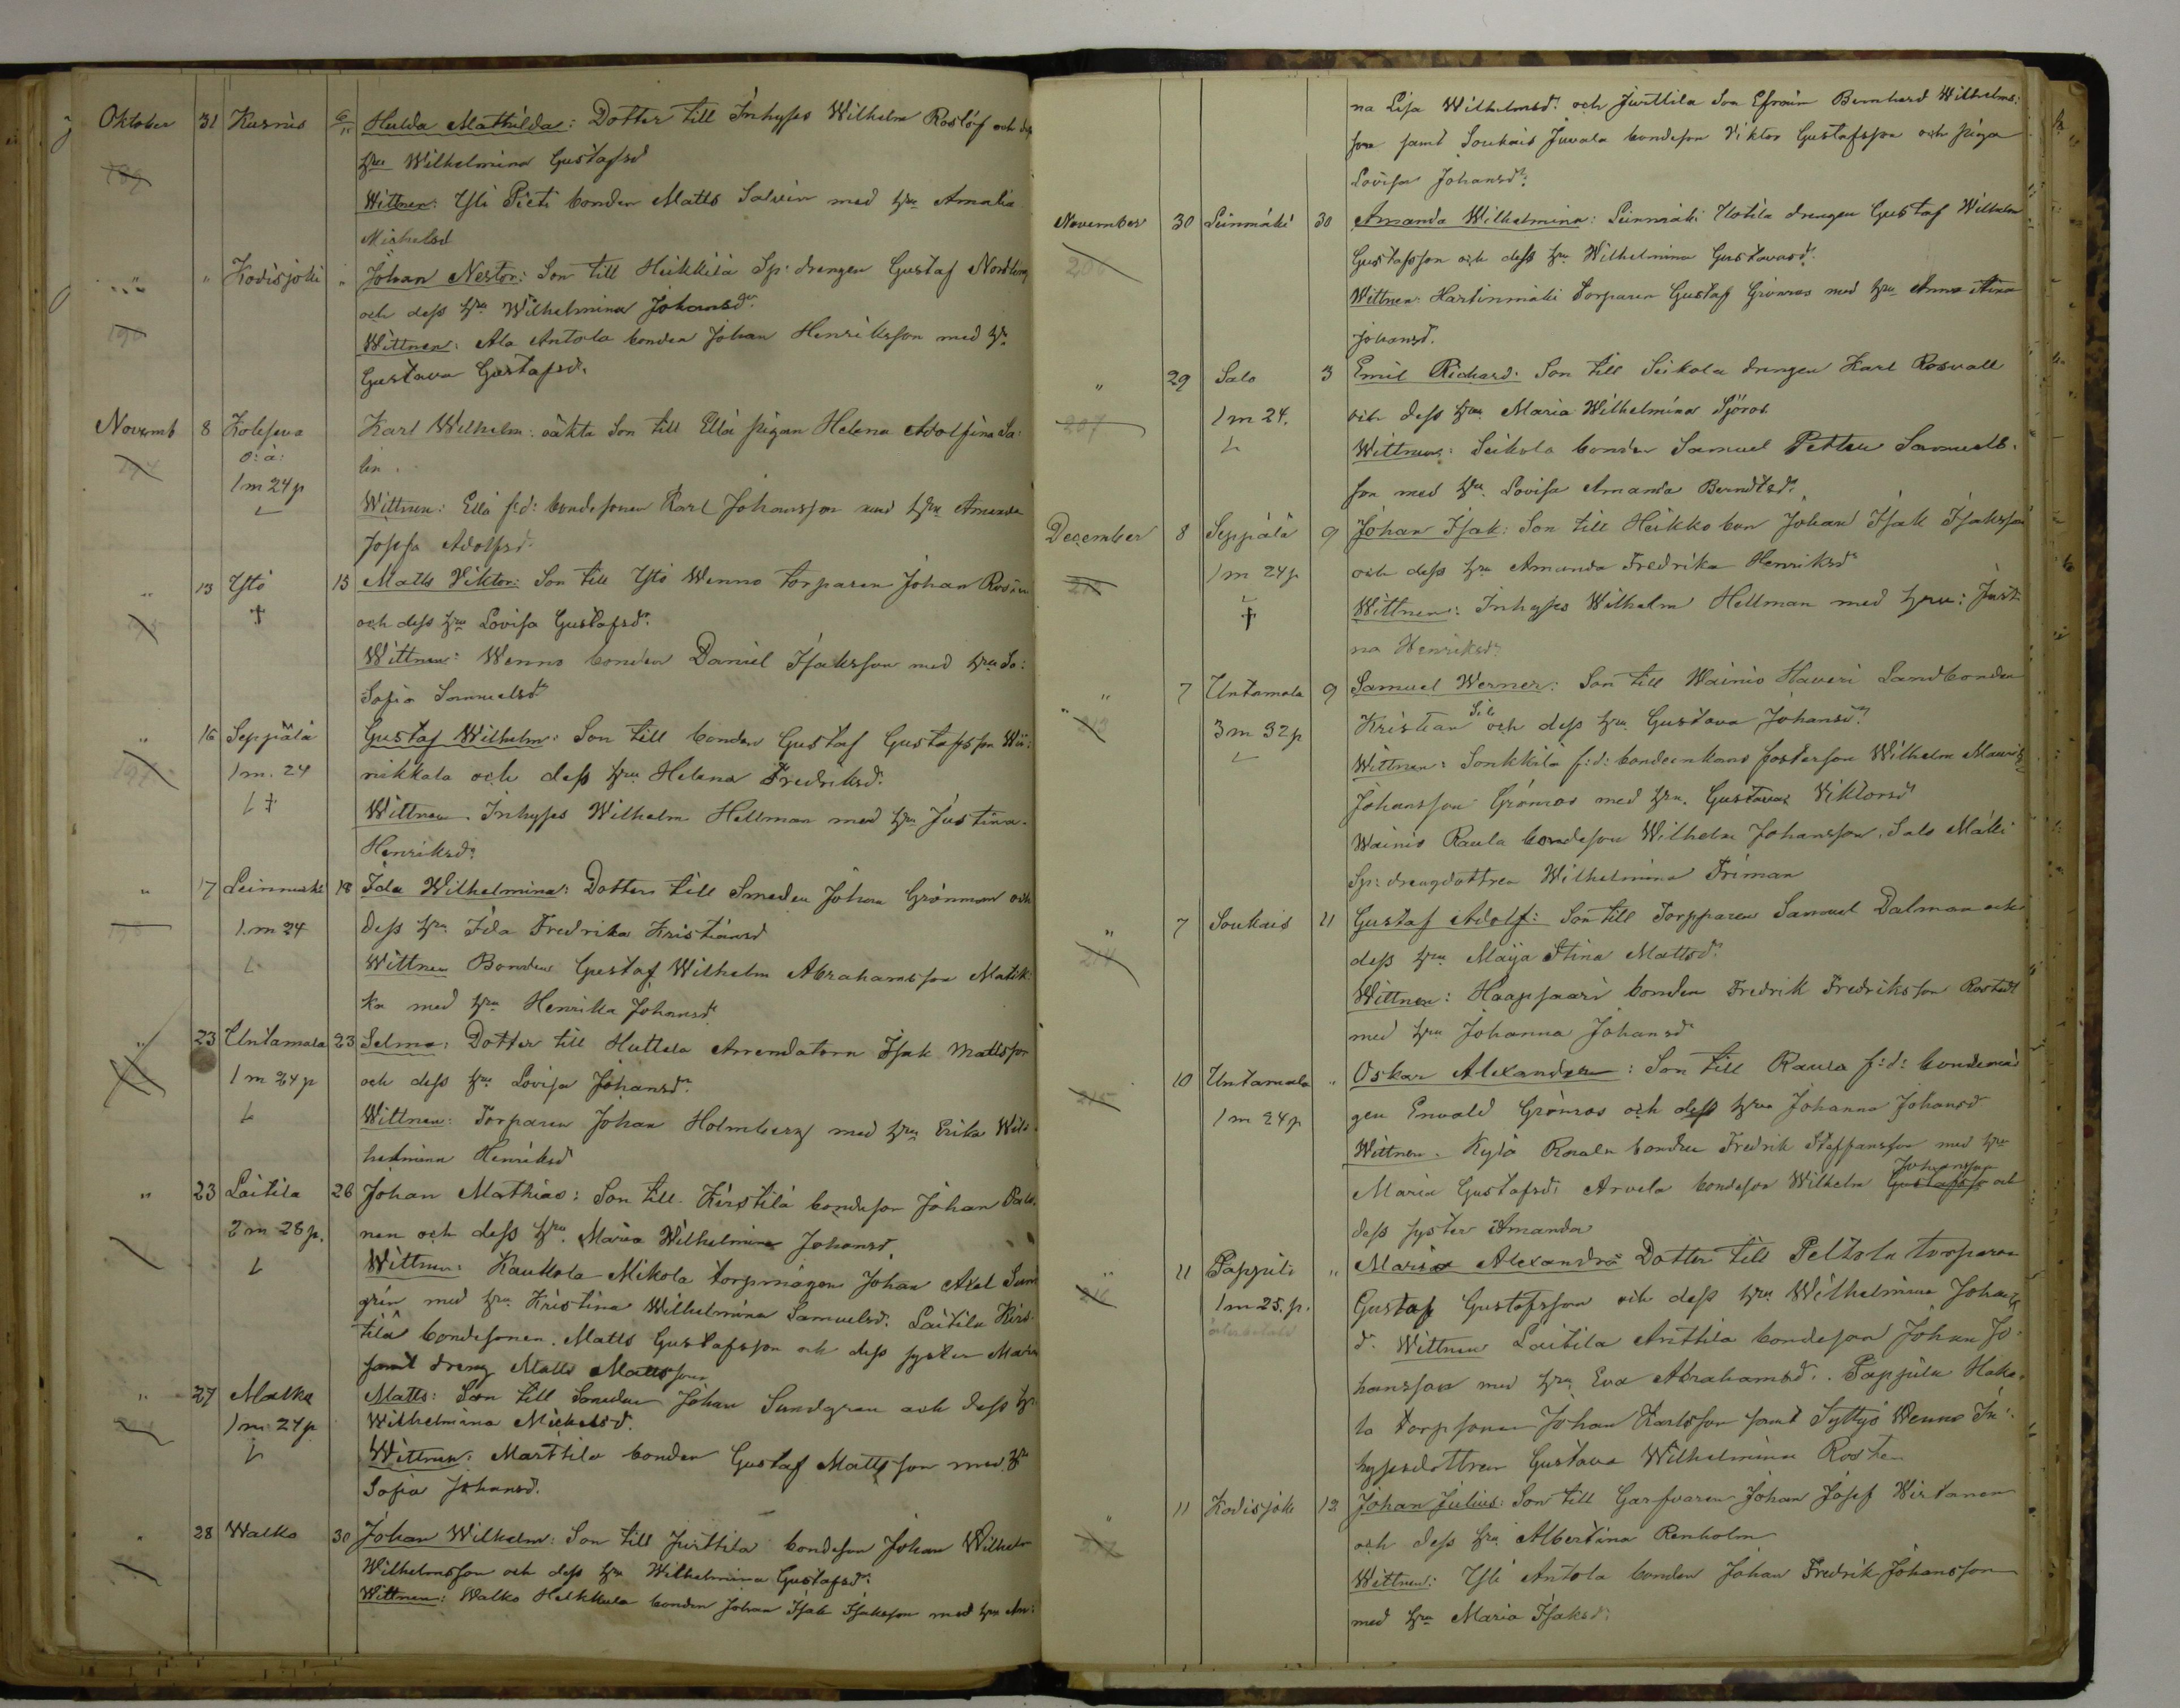 Oktober 31 Kusnis 6/11 Hulda Mathilda: Dotter till Inhyses Wilhelm Roslöf och dess
189 hru Wilhelmina Gustafsd
Wittnen: Yli Pieti bonden Matts Salvin med hru Amalia
Michelsd
" " Kodisjoki " Johan Nestor: Son till Heikkilä Sp: drengen Gustaf Nordling
och dess hru Wilhelmina Johansdr
190 Wittnen: Ala Antola bonden Johan Henriksson med hr
Gustava Gustafsd.
Novemb 8 Karl Wilhelm: oäkta Son till Ellä pigan Helena Adolfina Sa:
o: ä: lin.
1 m 24 p Wittnen: Ellä f:d: bondesonen Karl Johansson med hru Amanda
Josefa Adolfsd.
" 13 Ytö 15 Matts Viktor: Son till Ytö Wenno torparen Johan Rosin
† och dess hru Lovisa Gustafsdr
Wittnen: Wenno bonden Daniel Isaksson med hru So:
Sofia Samuelsdr
" 16 Seppälä Gustaf Wilhelm: Son till bonden Gustaf Gustafsson
1 m. 24 nikkala och dess hru Helena Fredriksd.
L † Wittnen. Inhyses Wilhelm Hellman med hru Justina
Henriksdr
" 17 Leinmäki 18 Ida Wilhelmina: Dotter till Smeden Johan Grönman och
1. m 24 dess hru Ida Fredrika Kristiansd
L Wittnen Bonden Gustaf Wilhelm Abrahamsson Matik
ka med hru Henrika Johansdr
" 23 Untamala 23 Selma: Dotter till Huttela Arrendatorn Isak Mattsson
1 m 24 p och dess hru Lovisa Johansdr
L Wittnen: Torparen Johan Holmberg med hru Erika Wil
helmina Henriksd
" 23 Laitila 26 Johan Mathias: Son till Kirstilä bondeson Johan
2 m 28 p. nen och dess hru Maria Wilhelmina Johansd.
L Wittnen: Kaukola Mikola torpmågen Johan Axel
grén med hru Kristina Wilhelmina Samuelsd. Laitila Kirs
tilä bondesonen. Matts Gustafsson och dess syster Maria
samt dreng Matts Mattsson
" 27 Malka Matts: Son till Smeden Johan Sundgren och dess hr
1 m 24 p Wilhelmina Michelsd.
L Wittnen: Marttila bonden Gustaf Mattsson med hr
Sofia Johansd.
" 28 Walko 30 Johan Wilhelm: Son till Jurttila bondeson Johan Wilhelm
Wilhelmsson och dess hru Wilhelmina Gustafsdr
Wittnen: Walko Heikkula bonden Johan Isak Isaksson med hru An:
na Lisa Wilhelmsdr och Jurttila Son Efraim Bernhard Wilhelms:
son samt Soukais Juvala bondeson Viktor Gustafsson och piga
Lovisa Johansdr
November 30 Leinmäki 30 Amanda Wilhelmina: Leinmäki drengen Gustaf Wilhelm
206 Gustafsson och dess hru Wilhelmina Gustavasdr
Wittnen: Hartinmäki torparen Gustaf Grönros med hru Anna Stina
Johansd.
" 29 Salo 3 Emil Richard: Son till Seikola drengen Karl Rosvall
1 m 24. och dess hru Maria Wilhelmina Sjöros
207 L Wittnen: Seikola bonden Samuel Petter Samuels
son med hru Lovisa Amanda Berndtsdr
December 8 Seppälä 9 Johan Isak: Son till Heikko bon Johan Isak Isaksson
212 1 m 24 p och dess hru Amanda Fredrika Henriksdr
L † Wittnen: Inhyses Wilhelm Hellman med hru: Justi
na Henriksdr
" 7 Untamala 9 Samuel Werner: Son till Wainio Haveri Landbonden
213 3 m 32 p Kristian Sil och dess hru Gustava Johansdr
L Wittnen: Sonkkila f:d: bondeenkans fosterson Wilhelm Mauritz
Johansson Grönros med hru. Gustava Viktorsd
Wainio Raula bondeson Wilhelm Johansson. Salo Mäki
Sp: drengdottren Wilhelmina Friman
" 7 Soukais 11 Gustaf Adolf: Son till Torpparen Samuel Dalman och
214 dess hru Maija Stina Mattsdr
Wittnen: Haapsaari bonden Fredrik Fredriksson Rostedt
med hru Johanna Johansdr
10 Untamala " Oskar Alexander: Son till Raula f:d: bondemå
215 1 m 24 p gen Envald Grönros och dess hru Johanna Johansd
Wittnen. Kylä Raula bonden Fredrik Staffansson med hru
Maria Gustafsd. Arvela bondeson Wilhelm Gustafsso Johansson och
dess syster Amanda
" 11 Pappila " Maria Alexandra Dotter till Peltola torparen
216 1 m 25. p. Gustaf Gustafsson och dess hru Wilhelmina Johans
d. Wittnen Laitila Anttila bondeson Johan Jo
hansson med hru Eva Abrahamsd. Pappila Haka
la torpsonen Johan Karlsson samt Syttyö Wenno In:
hysesdottren Gustava Wilhelmina Rosten
" 11 Kodisjoki 12 Johan Julius: Son till Garfvaren Johan Josef Wirtanen
217 och dess hru Albertina Renholm
Wittnen: Yli Antola bonden Johan Fredrik Johansson
med hru Maria Isaksd.